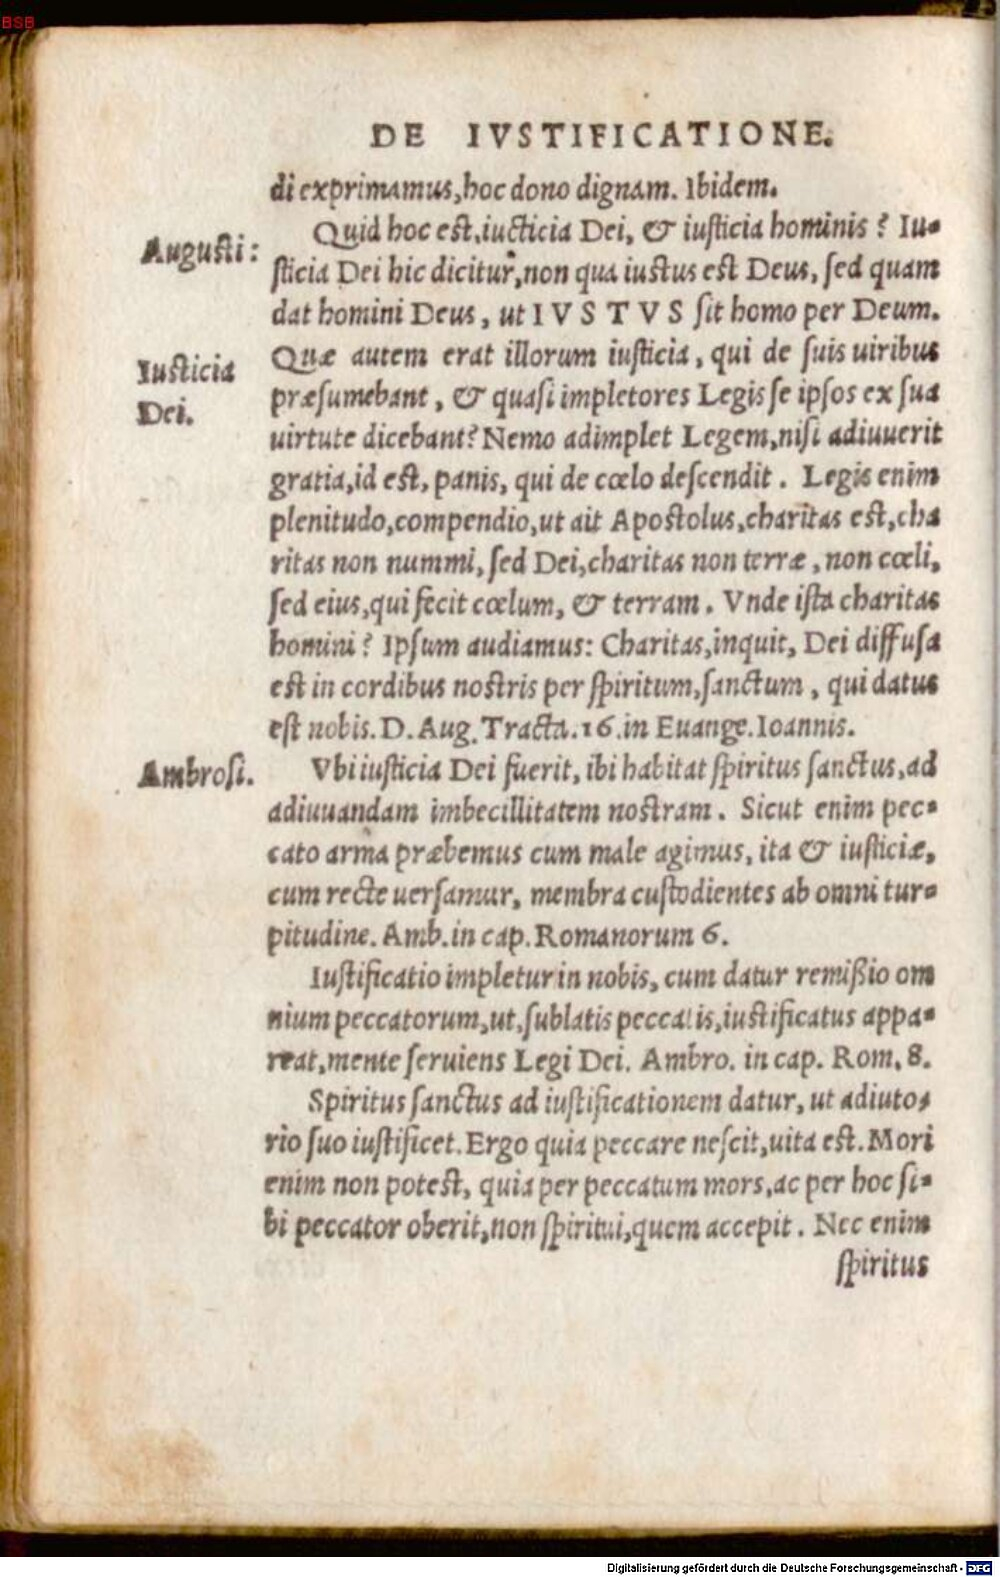 BSB
DE IVSTIFICATIONE.
di exprimamus, hoc dono dignam. Ibidem.
Augusti:
Quid hoc est, iucticia Dei, & iusticia hominis? Iu-
sticia Dei hic dicitur, non qua iustus est Deus, sed quam
dat homini Deus, ut IVSTVS sit homo per Deum.
Iusticia
Dei.
Quæ autem erat illorum iusticia, qui de suis uiribus
præsumebant, & quasi impletores Legis se ipsos ex sua
uirtute dicebant? Nemo adimplet Legem, nisi adiuuerit
gratia, id est, panis, qui de cœlo descendit. Legis enim
plenitudo, compendio, ut ait Apostolus, charitas est, cha
ritas non nummi, sed Dei, charitas non terræ, non cœli,
sed eius, qui fecit cœlum, & terram. Vnde ista charitas
homini? Ipsum audiamus: Charitas, inquit, Dei diffusa
est in cordibus nostris per spiritum, sanctum, qui datus
est nobis. D. Aug. Tracta. 16. in Euange. Ioannis.
Ambrosi.
Vbi iusticia Dei fuerit, ibi habitat spiritus sanctus, ad
adiuuandam imbecillitatem nostram. Sicut enim pec-
cato arma præbemus cum male agimus, ita & iusticiæ,
cum recte uersamur, membra custodientes ab omni tur-
pitudine. Amb. in cap. Romanorum 6.
Iustificatio impletur in nobis, cum datur remißio om
nium peccatorum, ut, sublatis peccatis, iustificatus appa-
reat, mente seruiens Legi Dei. Ambro. in cap. Rom. 8.
Spiritus sanctus ad iustificationem datur, ut adiuto-
rio suo iustificet. Ergo quia peccare nescit, uita est. Mori
enim non potest, quia per peccatum mors, ac per hoc si-
bi peccator oberit, non spiritui, quem accepit. Nec enim
spiritus
Digitalisierung gefördert durch die Deutsche Forschungsgemeinschaft - DFG